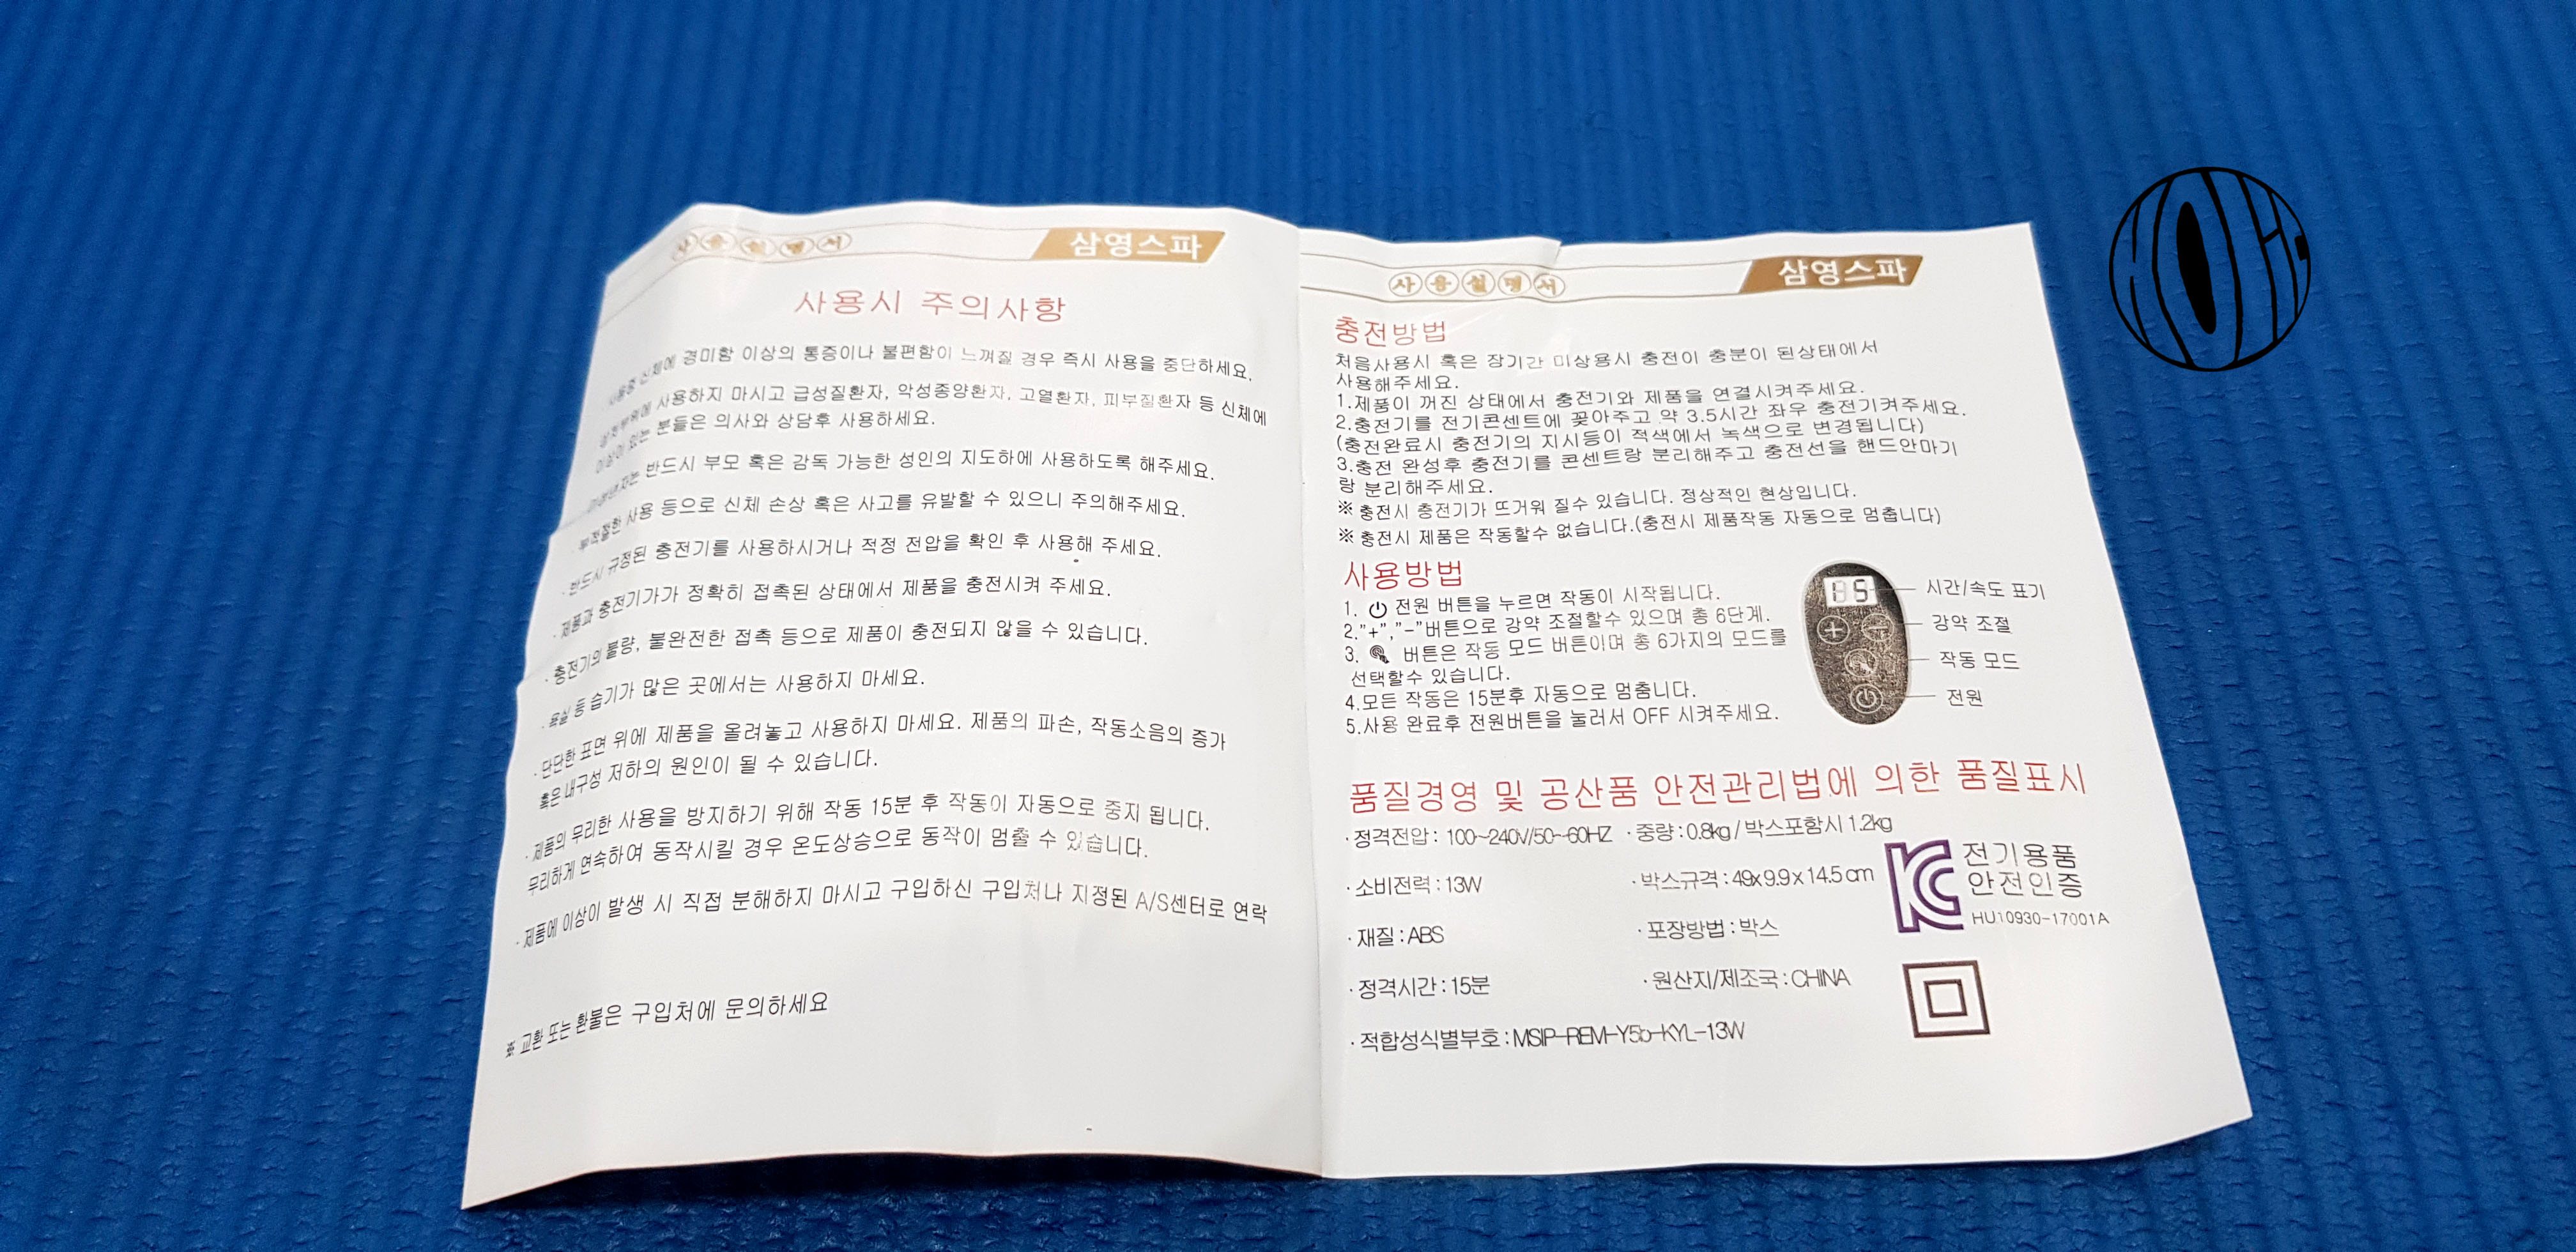 사용설명서
삼영스파
사용시 주의사항
· 사용중 신체에 경미함 이상의 통증이나 불편함이 느껴질 경우 즉시 사용을 중단하세요.
사용하지 마시고 급성질환자, 악성종양환자, 고열환자, 피부질환자 등 신체에
이상이 있는 분들은 의사와 상담후 사용하세요.
반드시 부모 혹은 감독 가능한 성인의 지도하에 사용하도록 해주세요.
· 부적절한 사용 등으로 신체 손상 혹은 사고를 유발할 수 있으니 주의해주세요.
· 반드시 규정된 충전기를 사용하시거나 적정 전압을 확인 후 사용해 주세요.
· 제품과 충전기가가 정확히 접촉된 상태에서 제품을 충전시켜 주세요.
· 충전기의 불량, 불완전한 접촉 등으로 제품이 충전되지 않을 수 있습니다.
· 욕실 등 습기가 많은 곳에서는 사용하지 마세요.
· 단단한 표면 위에 제품을 올려놓고 사용하지 마세요. 제품의 파손, 작동소음의 증가
혹은 내구성 저하의 원인이 될 수 있습니다.
· 제품의 무리한 사용을 방지하기 위해 작동 15분 후 작동이 자동으로 중지 됩니다.
무리하게 연속하여 동작시킬 경우 온도상승으로 동작이 멈출 수 있습니다.
· 제품에 이상이 발생 시 직접 분해하지 마시고 구입하신 구입처나 지정된 A/S센터로 연락
※ 교환 또는 환불은 구입처에 문의하세요
사용설명서
삼영스파
충전방법
처음사용시 혹은 장기간 미상용시 충전이 충분이 된상태에서
사용해주세요.
1.제품이 꺼진 상태에서 충전기와 제품을 연결시켜주세요.
2.충전기를 전기콘센트에 꽂아주고 약 3.5시간 좌우 충전기켜주세요.
(충전완료시 충전기의 지시등이 적색에서 녹색으로 변경됩니다)
3.충전 완성후 충전기를 콘센트랑 분리해주고 충전선을 핸드안마기
랑 분리해주세요.
※ 충전시 충전기가 뜨거워 질수 있습니다. 정상적인 현상입니다.
※ 충전시 제품은 작동할수 없습니다.(충전시 제품작동 자동으로 멈춥니다)
사용방법
1. 전원 버튼을 누르면 작동이 시작됩니다.
2."+","-"버튼으로 강약 조절할수 있으며 총 6단계.
3. 버튼은 작동 모드 버튼이며 총 6가지의 모드를
선택할수 있습니다.
4.모든 작동은 15분후 자동으로 멈춤니다.
5.사용 완료후 전원버튼을 눌러서 OFF 시켜주세요.
15
시간/속도 표기
강약 조절
작동 모드
전원
품질경영 및 공산품 안전관리법에 의한 품질표시
· 정격전압 : 100~240V/50~60HZ · 중량 : 0.8kg / 박스포함시 1.2kg
· 소비전력 : 13W · 박스규격 : 49x9.9x14.5cm
· 재질 : ABS · 포장방법 : 박스
· 정격시간 : 15분 · 원산지/제조국 : CHINA
· 적합성식별부호 : MSIP-REM-Y5o-KYL-13W
전기용품
안전인증
HU10930-17001A